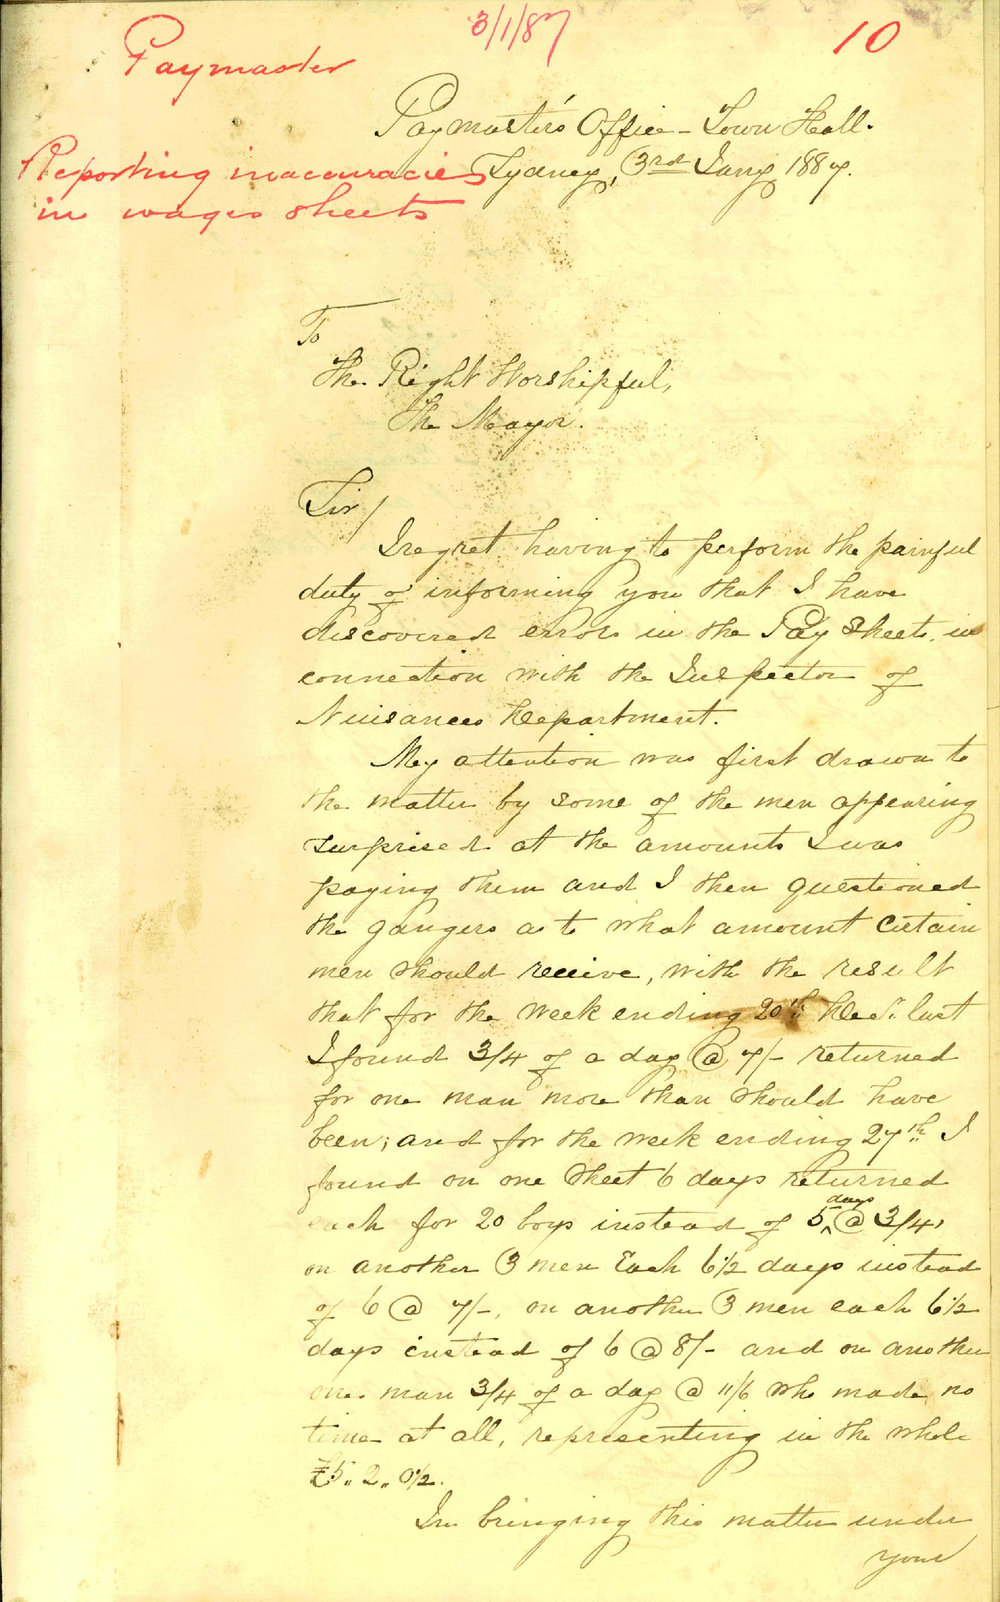 3/1/87
10
Paymaster
Paymaster's Office - Town Hall.
Reporting inaccuracies
in wages sheets
Sydney, 3rd Jany 1887.
To
The Right Worshipful,
The Mayor.
Sir/
I regret having to perform the painful
duty of informing you that I have
discovered errors in the Pay Sheets, in
connection with the Inspector of
Nuisances Department.
My attention was first drawn to
the matter by some of the men appearing
surprised at the amounts I was
paying them and I then questioned
the gangers as to what amount certain
men should receive, with the result
that for the week ending 20th Decr. last
I found 3/4 of a day @ 7/- returned
for one man more than should have
been; and for the week ending 27th I
found on one sheet 6 days returned
each for 20 boys instead of 5 days @ 3/4,
on another 3 men each 6 1/2 days instead
of 6 @ 7/-, on another 3 men each 6 1/2
days instead of 6 @ 8/- and on another
one man 3/4 of a day @ 11/6 who made no
time at all, representing in the whole
£5.. 2.. 0 1/2.
In bringing this matter under
your